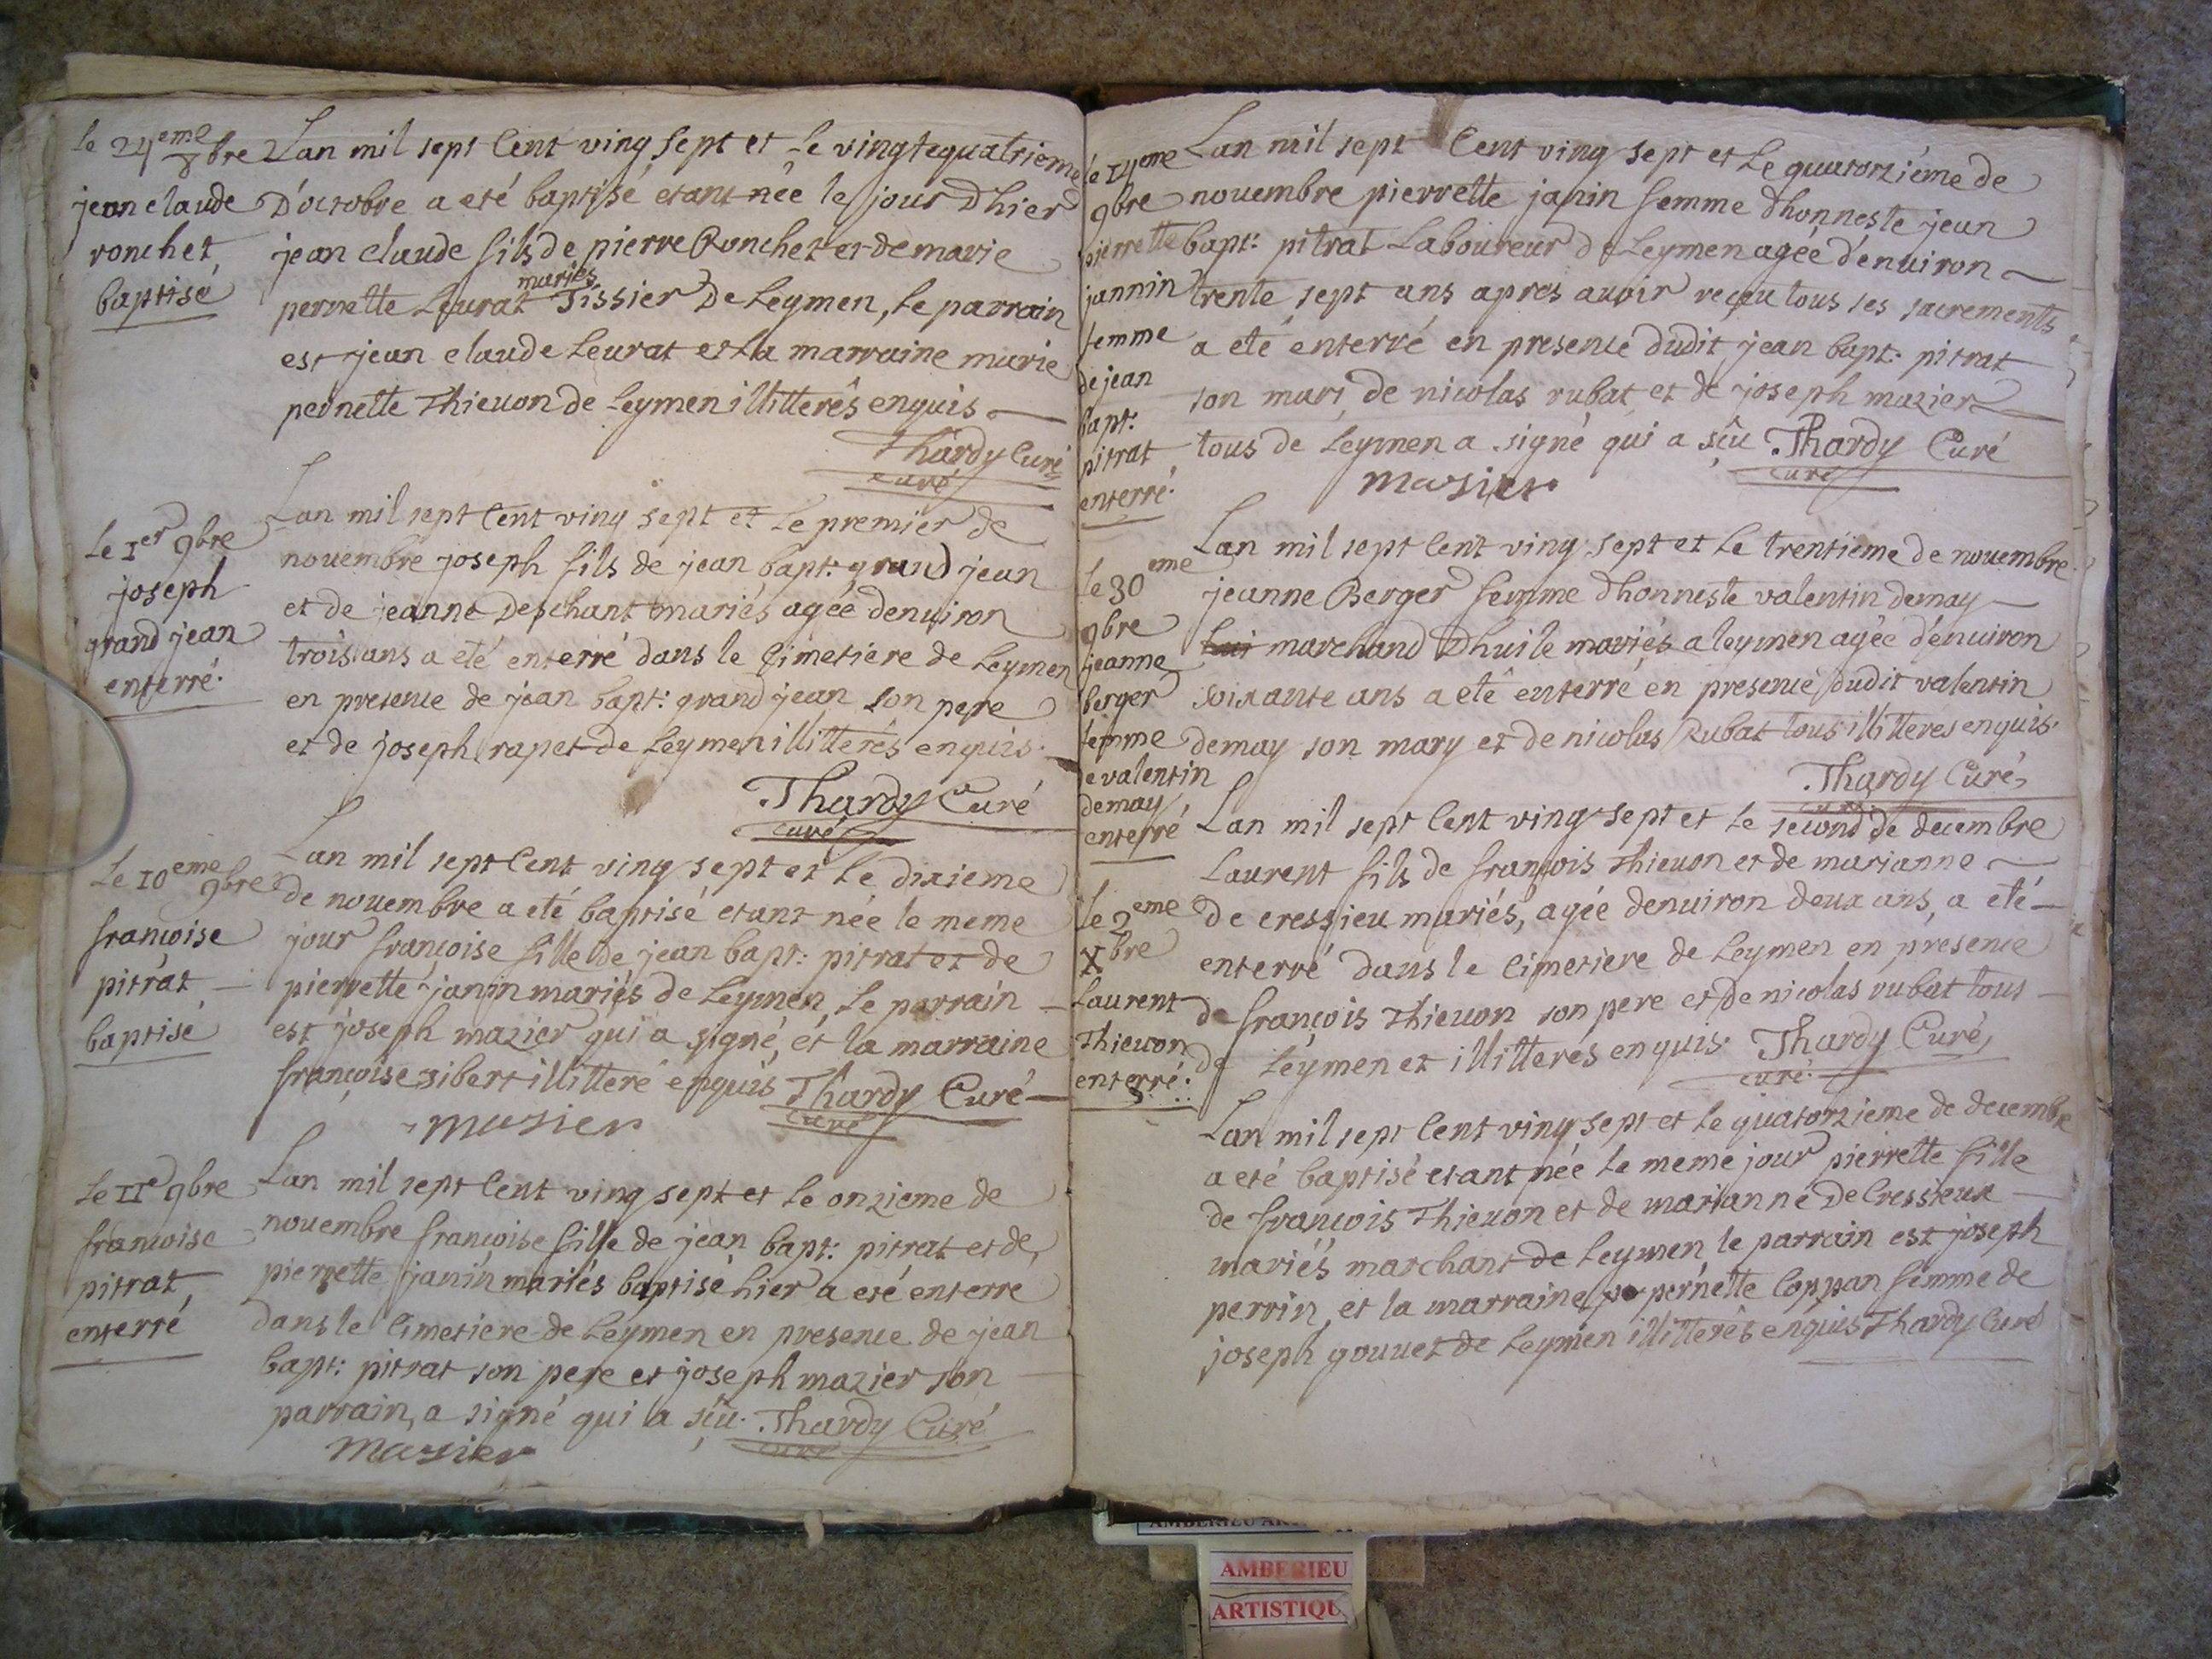 le 24eme 8bre
jean claude
ronchet
baptisé
Lan mil sept Cent ving sept et Le vingtequatrieme
D'octobre a eté baptisé etant née le jour Dhier
jean claude fils de pierre Ronchet et de marie
mariés
pernette Leurat Tissier De Leymen, Le parrain
est jean claude Leurat et La marraine marie
pernette Thieuon de Leymen illitterês enquis
Thardy Curé
curé
le 1er 9bre
joseph
grand jean
enterré.
Lan mil sept Cent ving sept et Le premier de
nouembre joseph fils de jean bapt: grand jean
et de jeanne Deschant mariés agée denuiron
trois ans a eté enterré dans le Cimetiere de Leymen
en presence de jean bapt: grand jean son pere
et de joseph rapet de Leymen illitterés enquis.
Thardy Curé
curé
Le 10eme 9bre
françoise
pitrat
baptisé
Lan mil sept Cent ving sept et Le dixieme
de nouembre a eté baptisé etant née le meme
jour françoise fille de jean bapt: pitrat et de
pierrette janin mariés de Leymen, Le parrain
est joseph mazier qui a signé, et la marraine
françoise sibert illitteré enquis Thardy Curé
curé
masier
Le 11e 9bre
francoise
pitrat
enterré
Lan mil sept Cent ving sept et Le onzieme de
nouembre françoise fille de jean bapt: pitrat et de
pierrette janin mariés baptisé hier a eté enterre
dans le Cimetiere de Leymen en presence de jean
bapt: pitrat son pere et joseph mazier son
parrain, a signé qui a sçû. Thardy Curé
curé
masier
le 14eme
9bre
pierrette
jannin
femme
de jean
bapt:
pitrat
enterré.
Lan mil sept Cent ving sept et Le quatorziéme de
nouembre pierrette janin femme dhonneste jean
bapt: pitrat Laboureur de Leymen agée d'enuiron
trente sept ans apres auoir reçeu tous ses sacrements
a eté enterré en presence dudit jean bapt: pitrat
son mari, de nicolas rubat et de joseph mazier
tous de Leymen a signé qui a sçû Thardy Curé
curé
masier
le 30eme
9bre
jeanne
berger
femme
de valentin
demay
enterré
Lan mil sept Cent ving sept et Le trentieme de nouembre
jeanne Berger femme dhonneste valentin demay
marchand Dhuile mariés a leymen agée d'enuiron
soixante ans a etê enterré en presence dudit valentin
demay son mary et de nicolas Rubat tous illitteres enquis.
Thardy Curé
curé
le 2eme
Xbre
Laurent
Thieuon
enterré:
Lan mil sept Cent ving sept et Le second de decembre
Laurent fils de françois Thieuon et de marianne
de cressieu mariés, agée denuiron deux ans, a eté
enterré dans le Cimetiere de Leymen en presence
de françois Thieuon son pere et de nicolas rubat tous
de Leymen et illitteres enquis. Thardy Curé
curé.
Lan mil sept Cent ving sept et Le quatorzieme de decembre
a eté baptisé etant née Le meme jour pierrette fille
de françois Thieuon et de marianne De Cressieux
mariés marchant de Leymen, le parrain est joseph
perrin, et la marraine pernette Coppan femme de
joseph gouuet de Leymen illitterês enquis Thardy Curé
AMBERIEU
ARTISTIQU